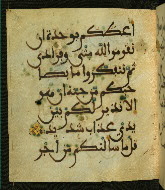 أعظكم بوحدة أن
تقوموا لله مثنى وفرادى
ثم تتفكروا ما بصا
حبكم من جنة إن هو
إلا نذير لكم بين
يدي عذاب شديد
قل ما سألتكم من أجر